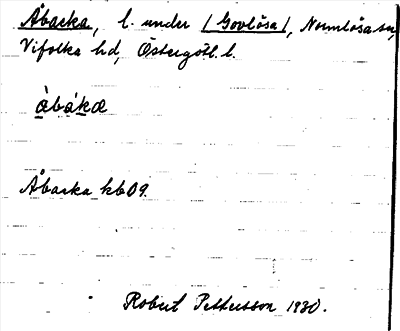 Åbacka, l. under /Govlösa/, Normlösa sn,
Vifolka hd, Östergötl. l.
àbákæ
Åbacka kb09.
Robert Pettersson 1930.